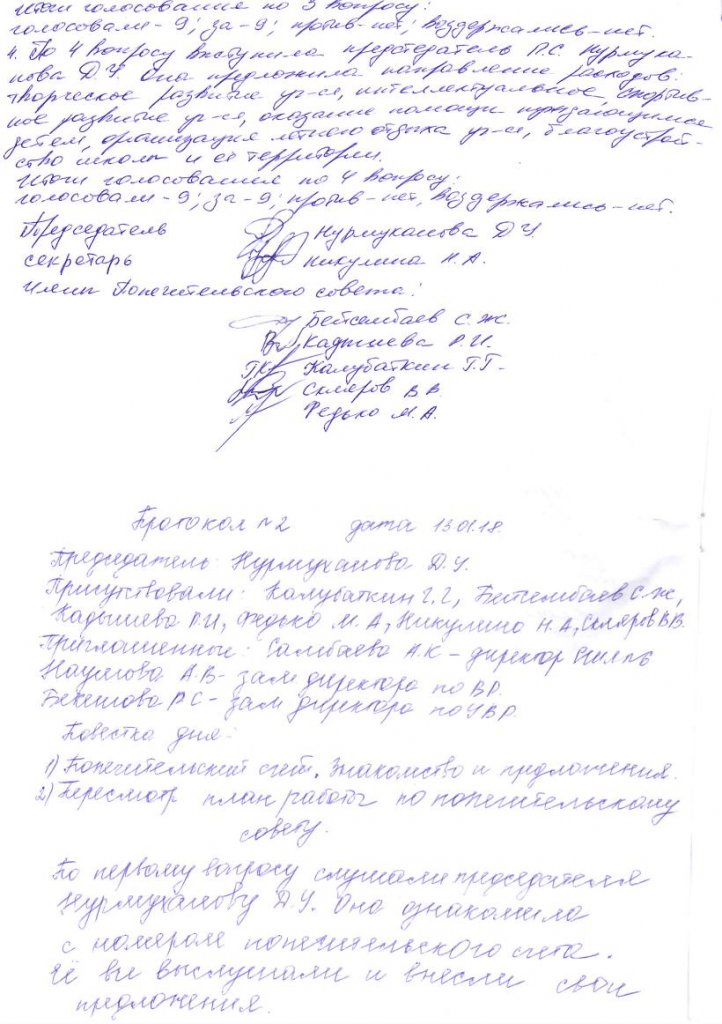 Итоги голосования по 3 вопросу:
голосовали - 9; за - 9; против - нет; воздержались - нет.
4. По 4 вопросу выступила председатель П.С Нурмука-
нова Д.У. Она предложила направление расходов:
творческое развитие уч-ся, интеллектуальное, спортив-
ное развитие уч-ся, оказание помощи нуждающимся
детям, организация летнего отдыха уч-ся, благоустрой-
ство школы и её территори.
Итоги голосования по 4 вопросу:
голосовали - 9; за - 9; против - нет, воздержались - нет.
Председатель Нурмуканова Д.У.
секретарь Никулина Н.А.
Члены Попечительского совета:
Бейсембаев С.Ж.
Кадышева Р.И.
Калубаткин Г.Г.
Скляров В.В.
Федько М.А.
Протокол №2 дата 13.01.18.
Председатель: Нурмуханова Д.У.
Присутствовали: Калубаткин Г.Г, Бейсембаев С.Ж,
Кадышева Р.И, Федько М.А, Никулина Н.А, Скляров В.В.
Приглашенные: Самбаева А.К - директор
Наумова А.В - зам директора по ВР.
Бекешова Р С - зам директора по УВР.
Повестка дня:
1) Попечительский счёт. Знакомство и предложения.
2) Пересмотр план работы по попечительскому
совету.
По первому вопросу слушали председателя
Нурмуханову Д.У. Она ознакомила
с номером попечительского счета.
Её все выслушали и внесли свои
предложения.